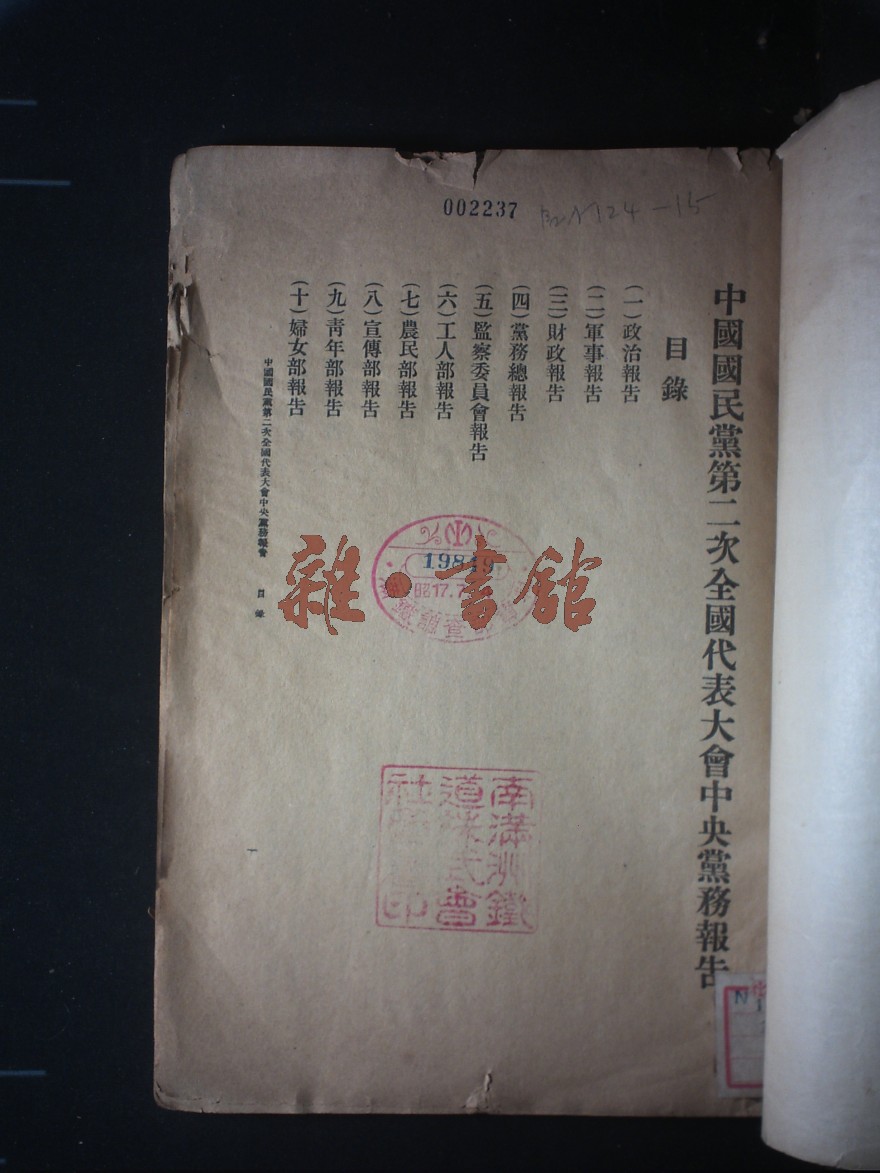 002237
中國國民黨第二次全國代表大會中央黨務報告
目錄
(一)政治報告
(二)軍事報告
(三)財政報告
(四)黨務總報告
(五)監察委員會報告
(六)工人部報告
(七)農民部報告
(八)宣傳部報告
(九)青年部報告
(十)婦女部報告
中國國民黨第二次全國代表大會中央黨務報會 目錄
雜·書館
昭17.7
南滿洲鐵
道株式會
N